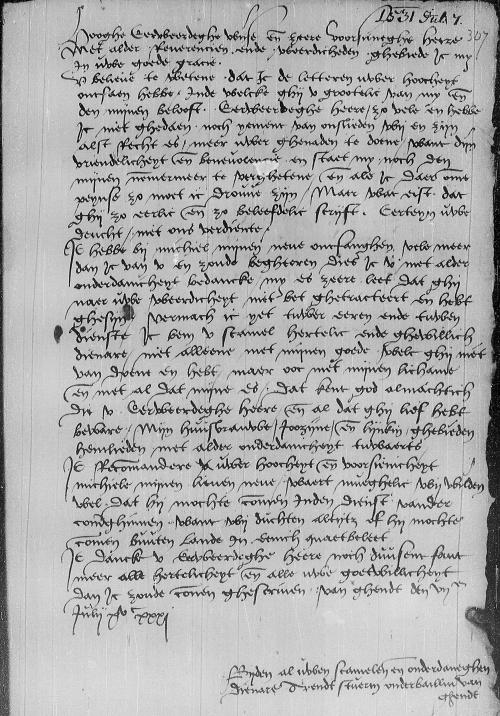 1531 Juli 7.
347
Hooghe Eerweerdeghe wyse en zeere voorsinneghe heere
Met alder Reverencien ende weerdicheden ghebiede ic my
in uwe goede gracie.
U believe te wetene dat ic de letteren uwer hoocheyt
ontfaen hebbe. Inde welcke ghij u grootelic van my en
den mijnen belooft. Eerweerdeghe heere, zo vele en hebbe
ic niet ghedaen noch yement van onslieden wij en zijn
alst Recht es, meer uwer ghenaden te doene want die
vriendelicheyt en benevolencie en staet my noch den
mijnen nemmermeer te verghetene en als ic daer omme
peynse zo moet ic drouve zijn. Maer wat eist dat
ghij zo eerlic en zo beleefdelic scrijft. Eerteyn uwe
deucht, niet ons verdiente.
Ic hebbe bij michiel mijnen neve ontfanghen vele meer
dan ic van u en zoude begheeren dies ic u met alder
onderdanicheyt bedancke my es zeere leet dat ghij
naer uwe weerdicheyt niet bet ghetracteert en hebt
ghesijn. Vermach ic yet tuwer eeren ende tuwen
dienste ic ben u scamel hertelic ende ghewillich
dienare, niet alleene met mijnen goede, welc ghij niet
van doene en hebt, maer ooc met mijnen lichame
en met al dat mijne es. Dat kent god almachtich
die u Eerweerdeghe heere en al dat ghij lief hebt
beware. Mijn huusvrauwe, Joozijne, en hijkin ghebieden
hemlieden met alder onderdanicheyt tuwaerts
Ic Recommandere uwer hoocheyt en voorsienicheyt
michiele mijnen lieven neve, waert mueghelic wij wilden
wel dat hij mochte comen inden dienst vander
coninghinnen, want wij duchten altijts of hij mochte
comen buuten lande in eenich quaet beleet
Ic dancke u Eerweerdeghe heere noch duusent fout
meer alle hertelicheyt en alle uwe goetwillicheyt
dan ic zoude connen ghescriven. Van ghendt den vij en
Julij xvc xxxj
Bijden al uwen scamelen en onderdaneghen
dienare
onderbailliu van
Ghendt